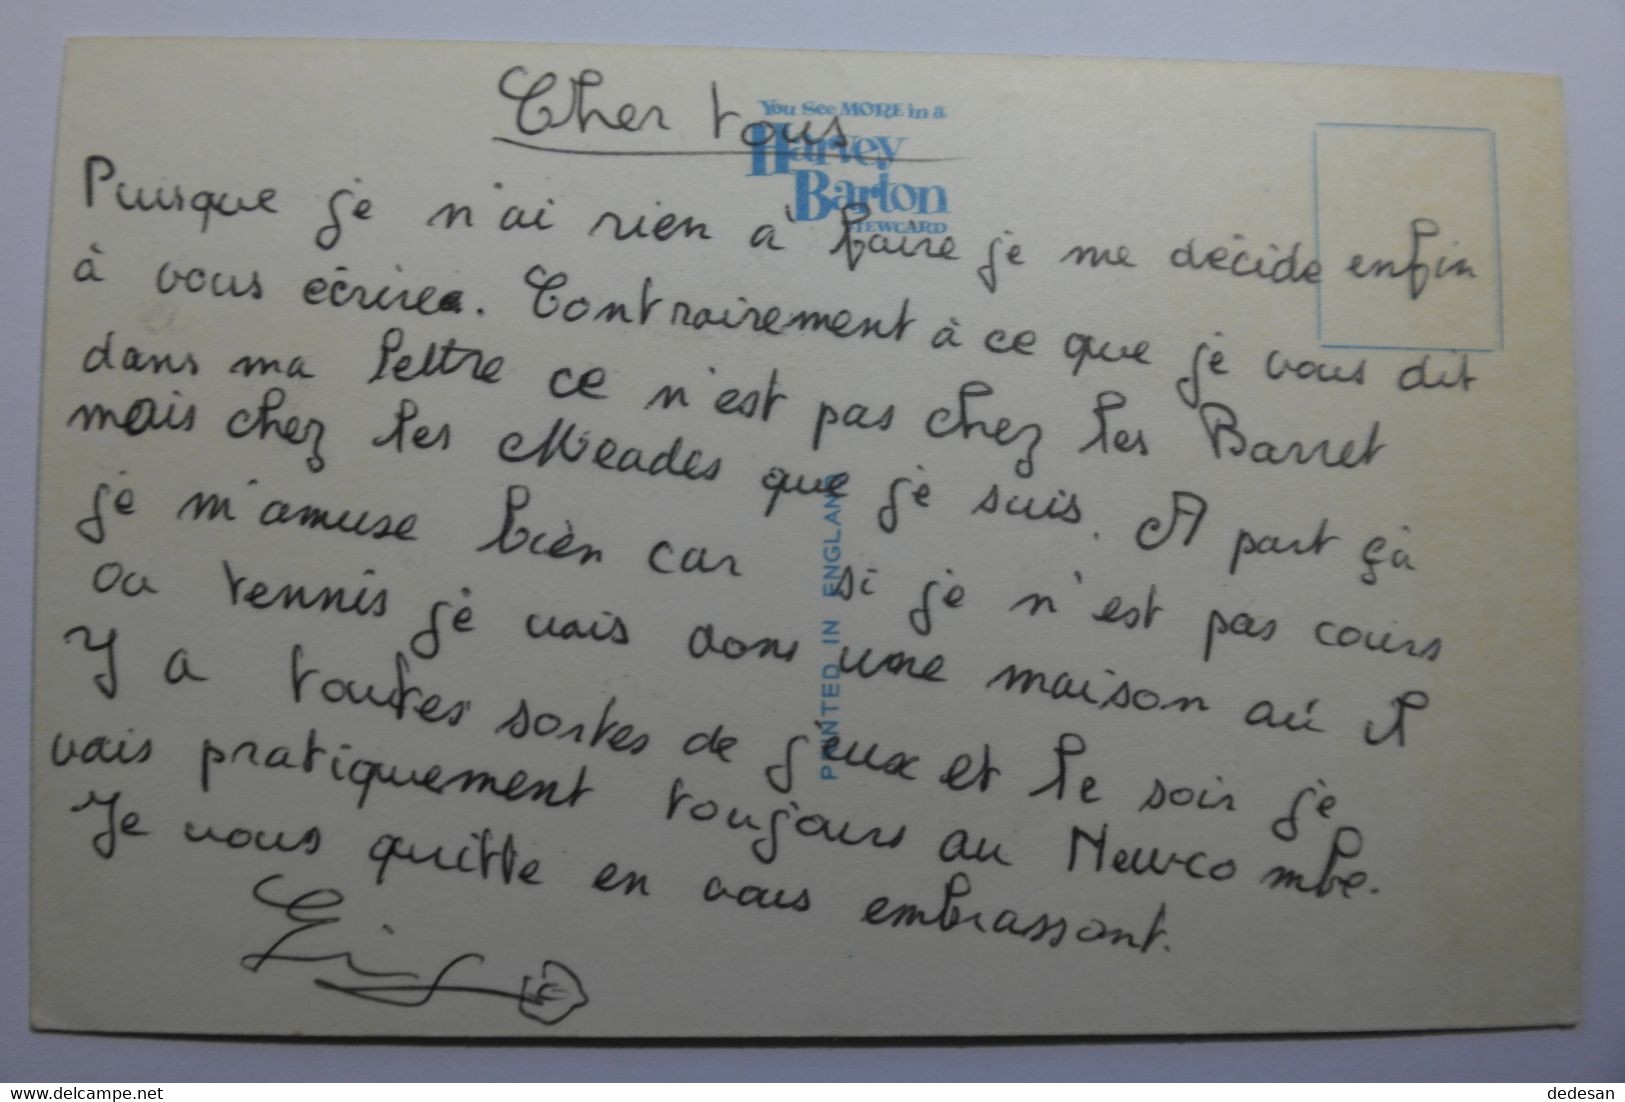 Cher tous
You See MORE in a
Harvey
Barton
VIEWCARD
Puisque je n'ai rien à faire je me décide enfin
à vous écrire. Contrairement à ce que je vous dit
dans ma lettre ce n'est pas chez les Barret
mais chez les Meades que je suis. A part çà
je m'amuse bien car si je n'est pas cours
ou tennis je vais dans une maison où il
Y a toutes sortes de jeux et le soir je
vais pratiquement toujours au Newcombe.
Je vous quitte en vous embrassant.
PRINTED IN ENGLAND
dedesan